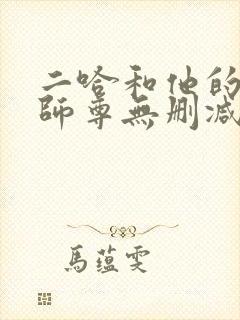 二哈和他的
師尊無删减
馬蕴雯